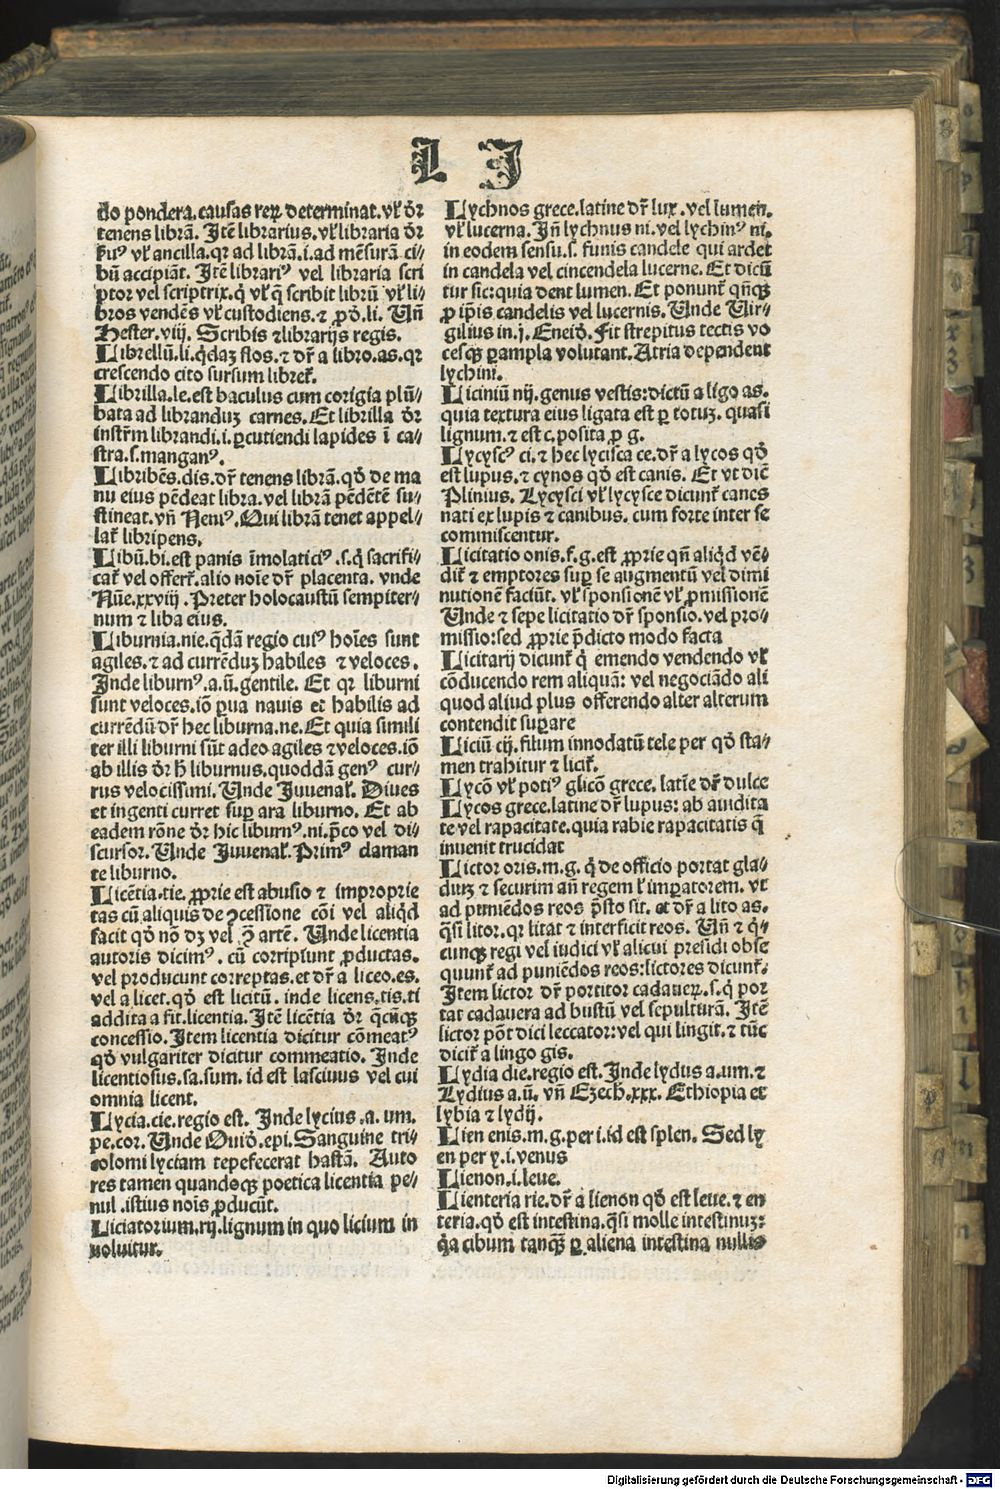 L J
do pondera.causas reꝝ determinat.vľ dr̄
tenens librā. Itē librarius.vľ libraria dr̄
ẜuꝰ vľ ancilla.qr ad librā.i.ad mēsurā ci⸗
bū accipiāt. Itē librariꝰ vel libraria scri
ptor vel scriptrix.q̇ vľ q̄ scribit librū vľ li⸗
bros vendēs vľ custodiens.⁊ ꝓd.li. Un̄
Hester.viij. Scribis ⁊librarijs regis.
Librellū.li.q̇daꝫ flos.⁊ dr̄ a libro.as.qr
crescendo cito sursum libret̄.
Librilla.le.est baculus cum corigia plū⸗
bata ad libranduꝫ carnes.Et librilla dr̄
instr̄m librandi.i.ꝑcutiendi lapides ī ca⸗
stra.s.manganꝰ.
Libribēs.dis.dr̄ tenens librā.qd̄ de ma
nu eius pēdeat libra.vel librā pēdētē su⸗
stineat.vn̄ Nemꝰ.Qui librā tenet appel⸗
lat̄ libripens.
Libū.bi.est panis īmolaticiꝰ.s.q̇ sacrifi⸗
cat̄ vel offert̄.alio noīe dr̄ placenta. vnde
Nūe.xxviij.Preter holocaustū sempiter⸗
num ⁊ liba eius.
Liburnia.nie.q̄dā regio cuiꝰ hoīes sunt
agiles.⁊ ad currēduꝫ habiles ⁊ veloces.
Inde liburnꝰ.a.ū.gentile. Et qr liburni
sunt veloces.iō ꝑua nauis et habilis ad
currēdū dr̄ hec liburna.ne.Et quia simili
ter illi liburni sūt adeo agiles ⁊veloces.iō
ab illis dr̄ h̄ liburnus.quoddā genꝰ cur⸗
rus velocissimi. Unde Juuenal̄. Diues
et ingenti curret suꝑ ara liburno. Et ab
eadem rōne dr̄ hic liburnꝰ.ni.p̄co vel di⸗
scursor. Unde Juuenal̄.Primꝰ claman
te liburno.
Licētia.tie. ꝓprie est abusio ⁊ improprie
tas cū aliquis de ꝯcessione cōi vel aliq̇d
facit qd̄ nō dꝫ vel ꝯ̄ artē. Unde licentia
autoris dicimꝰ. cū corripiunt ꝓductas.
vel producunt correptas.et dr̄ a liceo.es.
vel a licet.qd̄ est licitū. inde licens.tis.ti
addita a fit.licentia. Itē licētia dr̄ q̄cūqꝫ
concessio. Item licentia dicitur cōmeatꝰ
qd̄ vulgariter dicitur commeatio. Inde
licentiosus.sa.sum. id est lasciuus vel cui
omnia licent.
Lycia.cie.regio est. Inde lycius.a. um.
pe.cor. Unde Ouid̄.epi.Sanguine tri⸗
colomi lyciam tepefecerat hastā. Auto
res tamen quandoqꝫ poetica licentia pe⸗
nul.istius nois ꝓducūt.
Liciatorium.rij.lignum in quo licium in
uoluitur.
Lychnos grece.latine dr̄ lux.vel lumen.
vľ lucerna. In̄ lychnus ni.vel lychinꝰ ni.
in eodem sensu.s. funis candele qui ardet
in candela vel cincendela lucerne. Et dicū
tur sic:quia dent lumen. Et ponunt̄ qn̄qꝫ
ꝓ ip̄is candelis vel lucernis. Unde Uir⸗
gilius in.j.Eneid̄.Fit strepitus tectis vo
cesqꝫ ꝑampla volutant.Atria dependent
lychini.
Liciniū nij.genus vestis:dictū a ligo as.
quia textura eius ligata est ꝑ totuꝫ. quasi
lignum.⁊ est c.posita ꝓ g.
Lycyscꝰ ci.⁊ hec lycisca ce.dr̄ a lycos qd̄
est lupus.⁊ cynos qd̄ est canis. Et vt dic̄
Plinius. Lycysci vľ lycysce dicunt̄ canes
nati ex lupis ⁊ canibus. cum forte inter se
commiscentur.
Licitatio onis.f.g.est ꝓprie qn̄ aliq̇d vē⸗
dit̄ ⁊ emptores suꝑ se augmentū vel dimi
nutionē faciūt. vľ sponsionē vľ ꝓmissionē
Unde ⁊ sepe licitatio dr̄ sponsio. vel pro⸗
missio:sed ꝓprie p̄dicto modo facta
Licitarij dicunt̄ q̇ emendo vendendo vľ
cōducendo rem aliquā: vel negociādo ali
quod aliud plus offerendo alter alterum
contendit suꝑare
Liciū cij.filum innodatū tele per qd̄ sta⸗
men trahitur ⁊ licit̄.
Lycō vľ potiꝰ glicō grece. latīe dr̄ dulce
Lycos grece.latine dr̄ lupus: ab auidita
te vel rapacitate.quia rabie rapacitatis q̄
inuenit trucidat
Lictor oris.m.g. q̇ de officio portat gla⸗
diuꝫ ⁊ securim an̄ regem ľ imꝑatorem. vt
ad puniēdos reos p̄sto sit. et dr̄ a lito as.
q̄si litor.qr litat ⁊ interficit reos. Un̄ ⁊ q̇⸗
cunqꝫ regi vel iudici vľ alicui presidi obse
quunt̄ ad puniēdos reos:lictores dicunt̄.
Item lictor dr̄ portitor cadaueꝝ.s.q̇ por
tat cadauera ad bustū vel sepulturā. Itē
lictor pōt dici leccator:vel qui lingit.⁊ tūc
dicit̄ a lingo gis.
Lydia die.regio est. Inde lydus a.um.⁊
Lydius a.ū. vn̄ Ezech.xxx. Ethiopia et
lybia ⁊ lydij.
Lien enis.m.g.per i.id est splen. Sed ly
en per y.i.venus
Lienon.i.leue.
Lienteria rie.dr̄ a lienon qd̄ est leue.⁊ en
teria.qd̄ est intestina.q̄si molle intestinuꝫ:
q̇a cibum tanqꝫ̄ ꝑ aliena intestina nullis
Digitalisierung gefördert durch die Deutsche Forschungsgemeinschaft - DFG